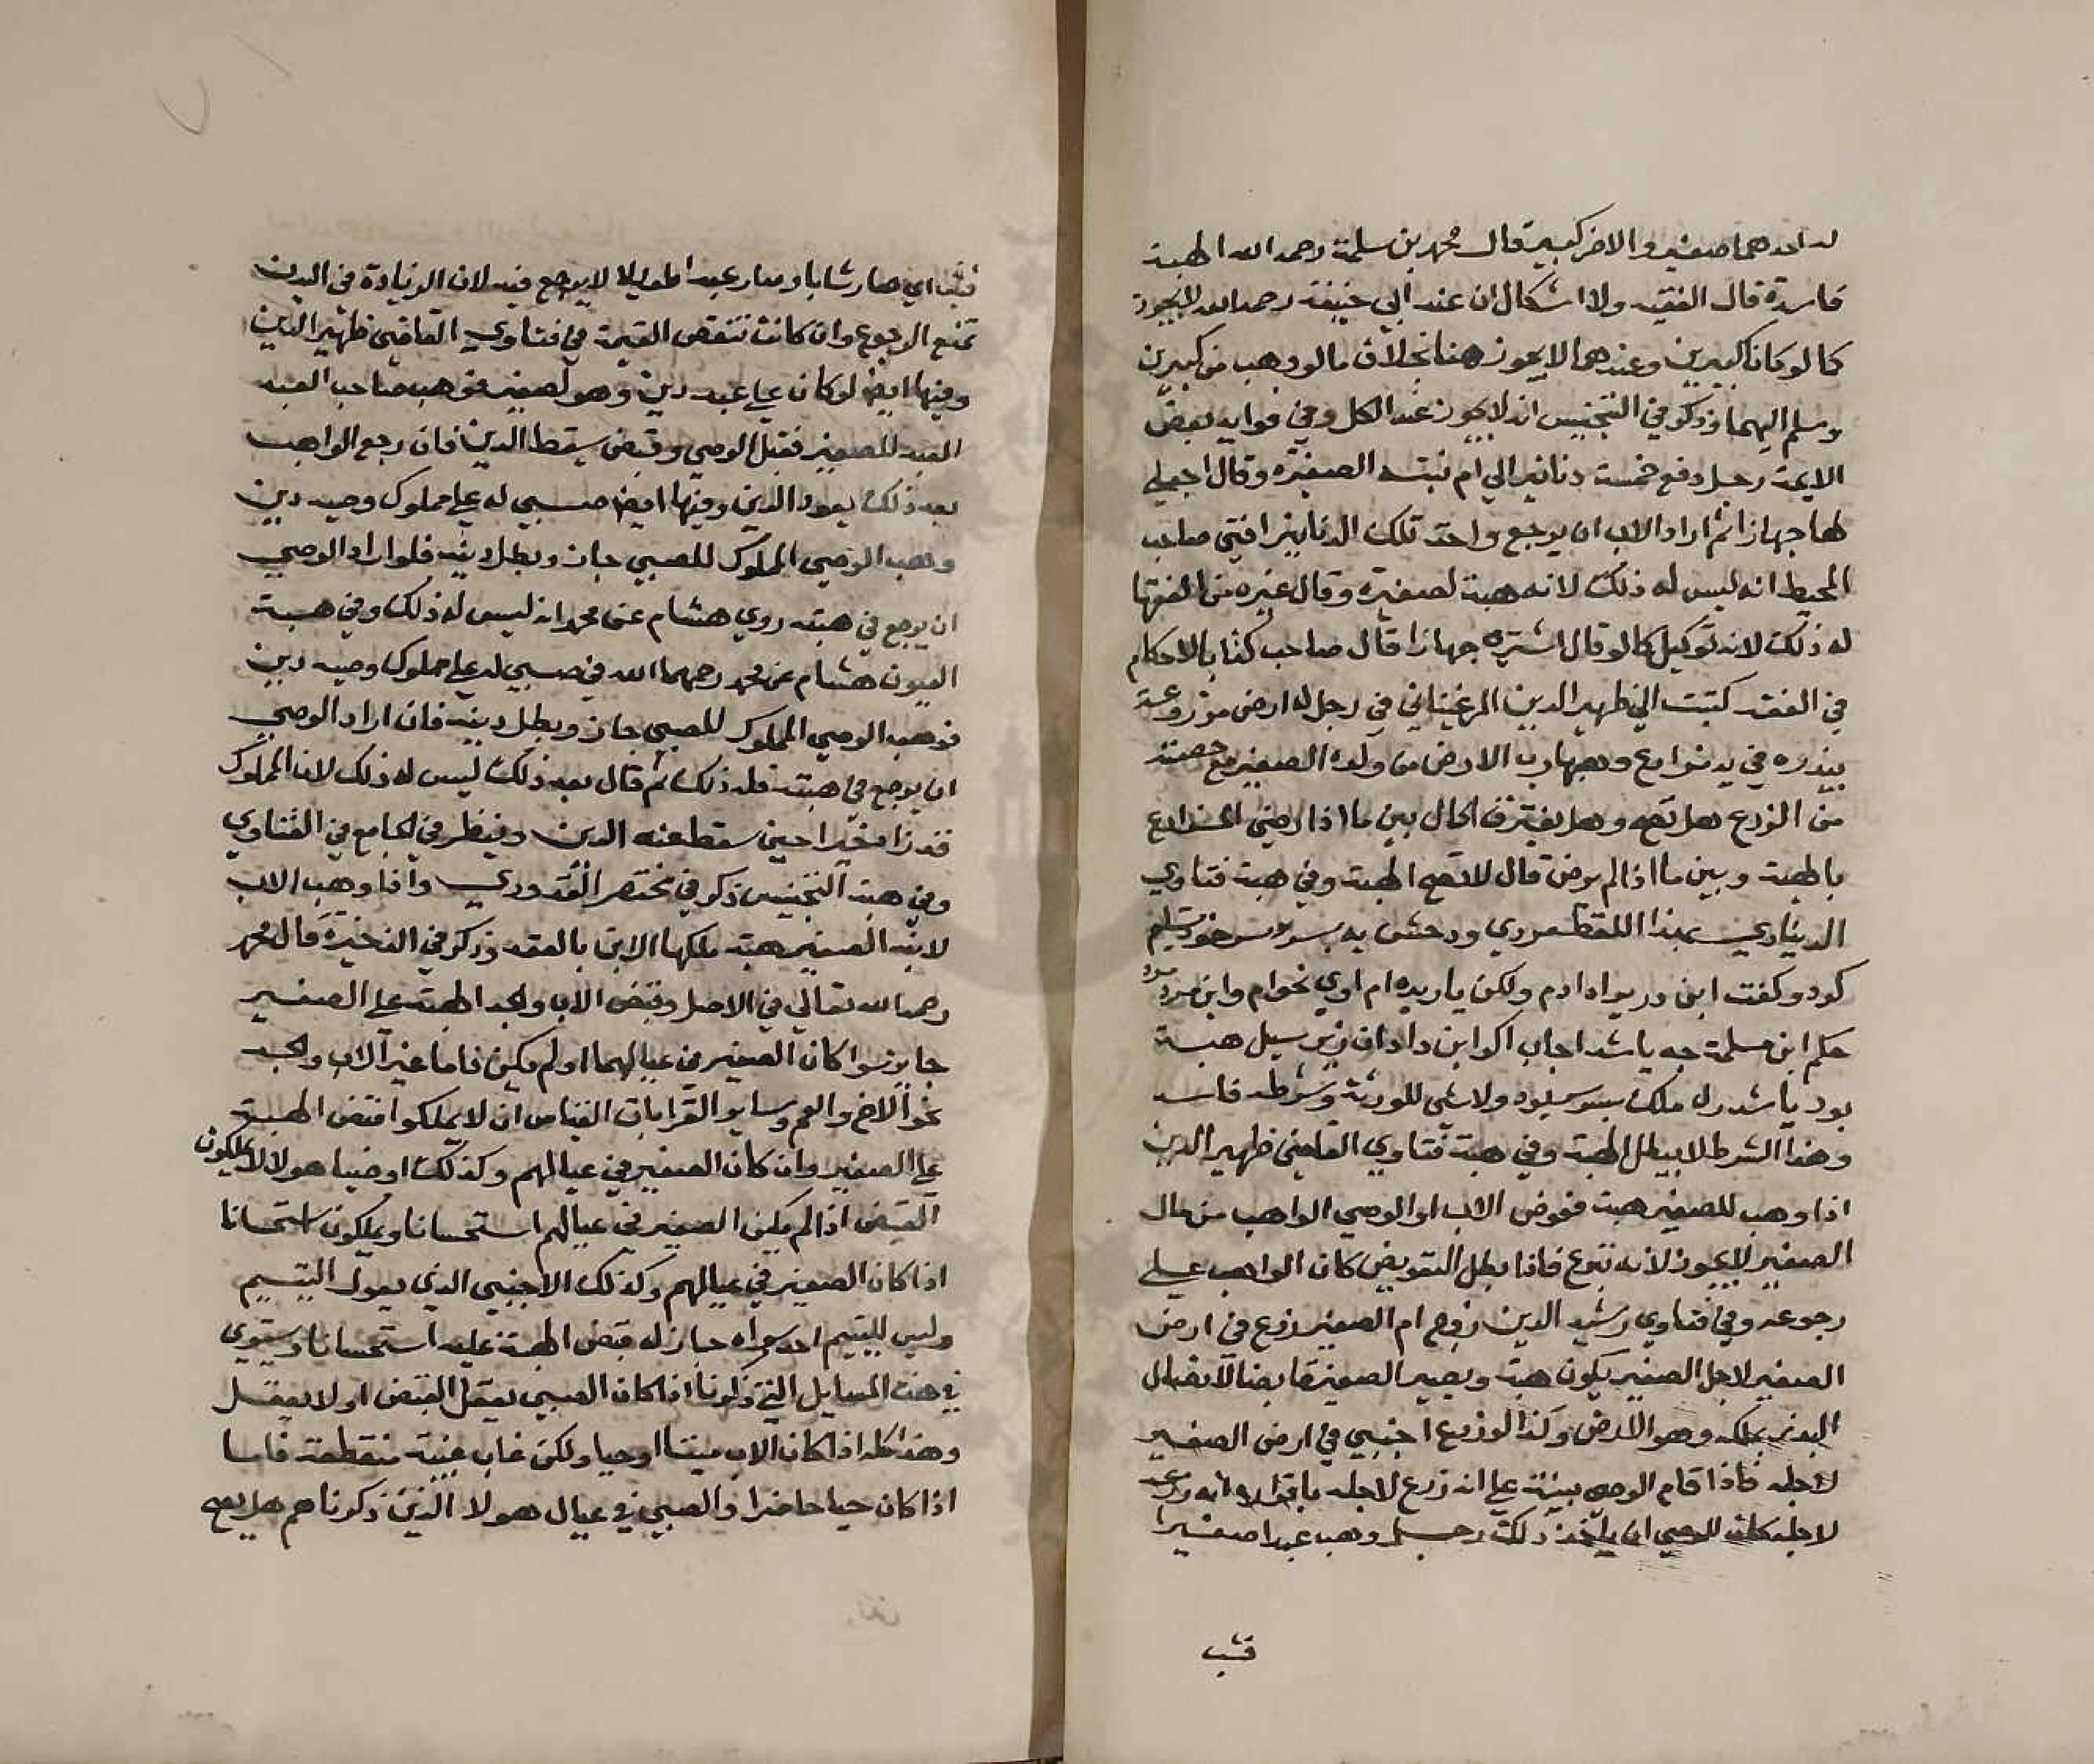 له احدهما صغير والاخر كبير قال محمد بن سلمة رحمه الله الهبة
فاسدة قال الفقيه ولا اشكال ان عند ابي حنيفة رحمه الله لا يجوز
كما لو كانا كبيرين وعندهما لا يجوز هنا بخلاف ما لو وهب من كبيرين
وسلم اليهما وذكر في التجنيس انه لا يجوز عند الكل وفي فوايد بعض
الايمة رجل دفع خمسة دنانير الي ام بنته الصغيرة وقال اجعلي
لها جهازا ثم اراد الاب ان يرجع واخذ تلك الدنانير افتي صاحب
المحيط انه ليس له ذلك لانه هبة لصغيرة وقال غيره من الفقها
له ذلك لانه توكيل كما لو قال اشتري جهازا قال صاحب كتاب الاحكام
في الفقه كتبت الي ظهير الدين المرغيناني في رجل له ارض مزروعة
ببذره في يد مزارع وهبها رب الارض من ولده الصغير مع حصته
من الزرع هل تصح وهل يفترق الحال بين ما اذا رضي المزارع
بالهبة وبين ما اذا لم يرض قال لا تصح الهبة وفي هبة فتاوي
الديناري بهذا اللفظ مردي ورخش به بسر خود تسليم
كرد وكفت اين در بواه ادم ولكن يا ريده ام اوي نخوام واين مرد مرد
حكم اين مسلمة جه باشد اجاب اكر اين داد ان زين سبيل هبة
بود باشد ملك بسر بود ولا شي للورثة وشرطه فاسد
وهذا الشرط لا يبطل الهبة وفي هبة فتاوي القاضي ظهير الدين
اذا وهب للصغير هبة فعوض الاب او الوصي الواهب من مال
الصغير لا يجوز لانه تبرع فاذا بطل التعويض كان الواهب علي
رجوعه وفي فتاوي رشيد الدين زوج ام الصغير زرع في ارض
الصغير لاجل الصغير يكون هبة ويصير الصغير قابضا لاتصال
البذر بملكه وهو الارض وكذا لو زرع اجنبي في ارض الصغير
لاجله فاذا اقام الوصي بينة علي انه زرع لاجله باقراره انه زرعه
لاجله كان للوصي ان ياخذ ذلك رجل وهب عبدا صغيرا
فشب
فشب اي صار شابا وصار عبدا طويلا لا يرجع فيه لان الزيادة في البدن
تمنع الرجوع وان كانت تنقص القيمة في فتاوي القاضي ظهير الدين
وفيها ايضا لو كان علي عبد دين وهو لصغير فوهب صاحب العبد
العبد للصغير فقبل الوصي وقبض يسقط الدين فان رجع الواهب
بعد ذلك يعود الدين وفيها ايضا صبي له علي مملوك وصيه دين
وهب الوصي المملوك للصبي جاز وبطل دينه فلو اراد الوصي
ان يرجع في هبته روي هشام عن محمد انه ليس له ذلك وفي هبة
العيون هشام عن محمد رحمهما الله في صبي له علي مملوك وصيه دين
فوهب الوصي المملوك للصبي جاز وبطل دينه فان اراد الوصي
ان يرجع في هبته فله ذلك ثم قال بعد ذلك ليس له ذلك لان المملوك
قد زاد خيرا حين سقط عنه الدين وينظر في الجامع في الفتاوي
وفي هبة التجنيس ذكر في مختصر القدوري واذا وهب الاب
لابنه الصغير هبة ملكها الابن بالعقد وذكر في الذخيرة قال محمد
رحمه الله تعالي في الاصل وقبض الاب والجد الهبة علي الصغير
جايز سوا كان الصغير في عيالهما او لم يكن فاما غير الاب والجد
نحو الاخ والعم وساير القرابات القياس ان لا يملكوا قبض الهبة
علي الصغير وان كان الصغير في عيالهم وكذلك اوصيا هولا لا يملكون
القبض اذا لم يكن الصغير في عيالهم استحسانا ويملكون استحسانا
اذا كان الصغير في عيالهم وكذلك الاجنبي الذي يعول اليتيم
وليس لليتيم احد سواه جاز له قبض الهبة عليه استحسانا ويستوي
في هذه المسايل التي ذكرنا اذا كان الصبي يعقل القبض او لا يعقل
وهذا كله اذا كان الاب ميتا او حيا ولكن غاب غيبة منقطعة فاما
اذا كان حيا حاضرا والصبي في عيال هولا الذين ذكرناهم هل يصح